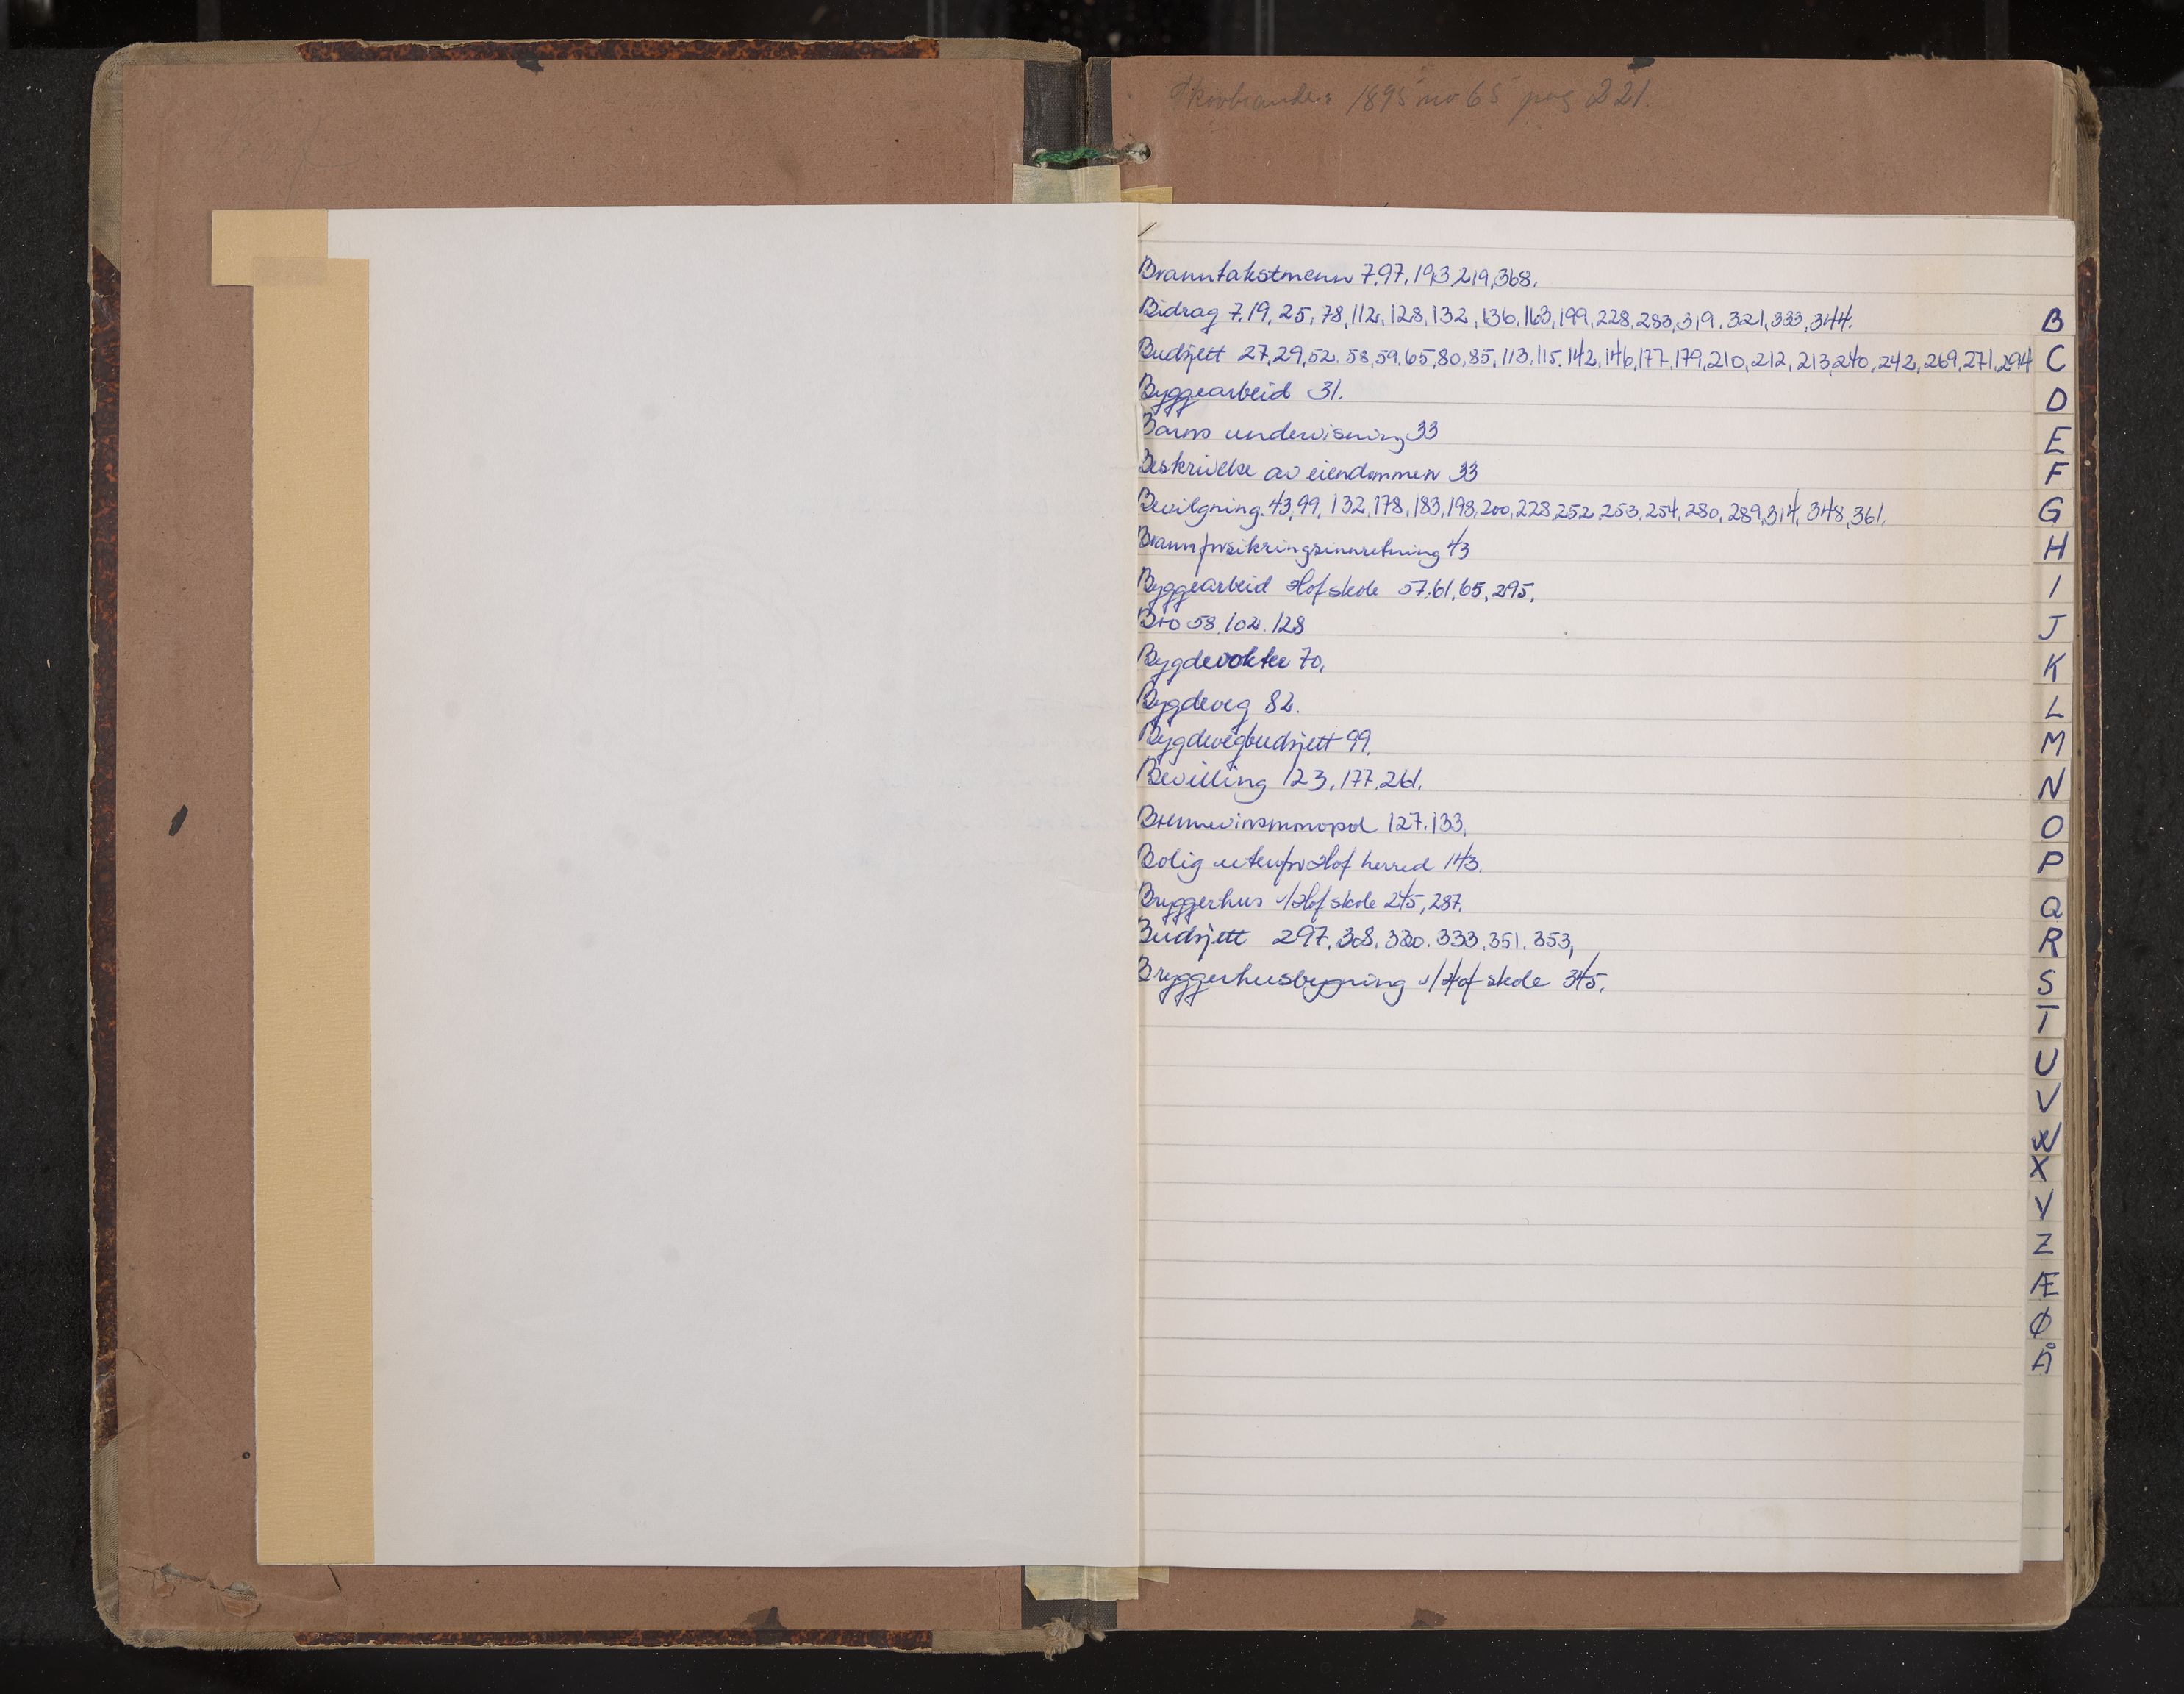 1895 no 65 pag 221.
Branntakstmenn 7,97,193,219,368.
Bidrag 7,19,25,78,112,128,132,136,163,199,228,283,319,321,333,344.
Budsjett 27,29,52,58,59,65,80,85,113,115,142,146,177,179,210,212,213,240,242,269,271,294
Byggearbeid 31.
Barns undervisning 33
Beskrivelse av eiendommen 33
Bevilgning. 43,99,132,178,183,198,200,228,252,253,254,280,289,314,348,361.
Brannforsikringsinnretning 43
Byggearbeid Hof skole 57,61,65,295.
Bro 58.102.128
Bygdevokter 70.
Bygdeveg 82.
Bygdevegbudsjett 99.
Bevilling 123,177,261.
Brennevinsmonopol 127.133.
Bolig utenfor Hof herred 143.
Bryggerhus v/Hof skole 245,287.
Budsjett 297,308,320,333,351,353,
Bryggerhusbygning v/Hof skole 345.
B
C
D
E
F
G
H
I
J
K
L
M
N
O
P
Q
R
S
T
U
V
W
X
Y
Z
Æ
Ø
Å